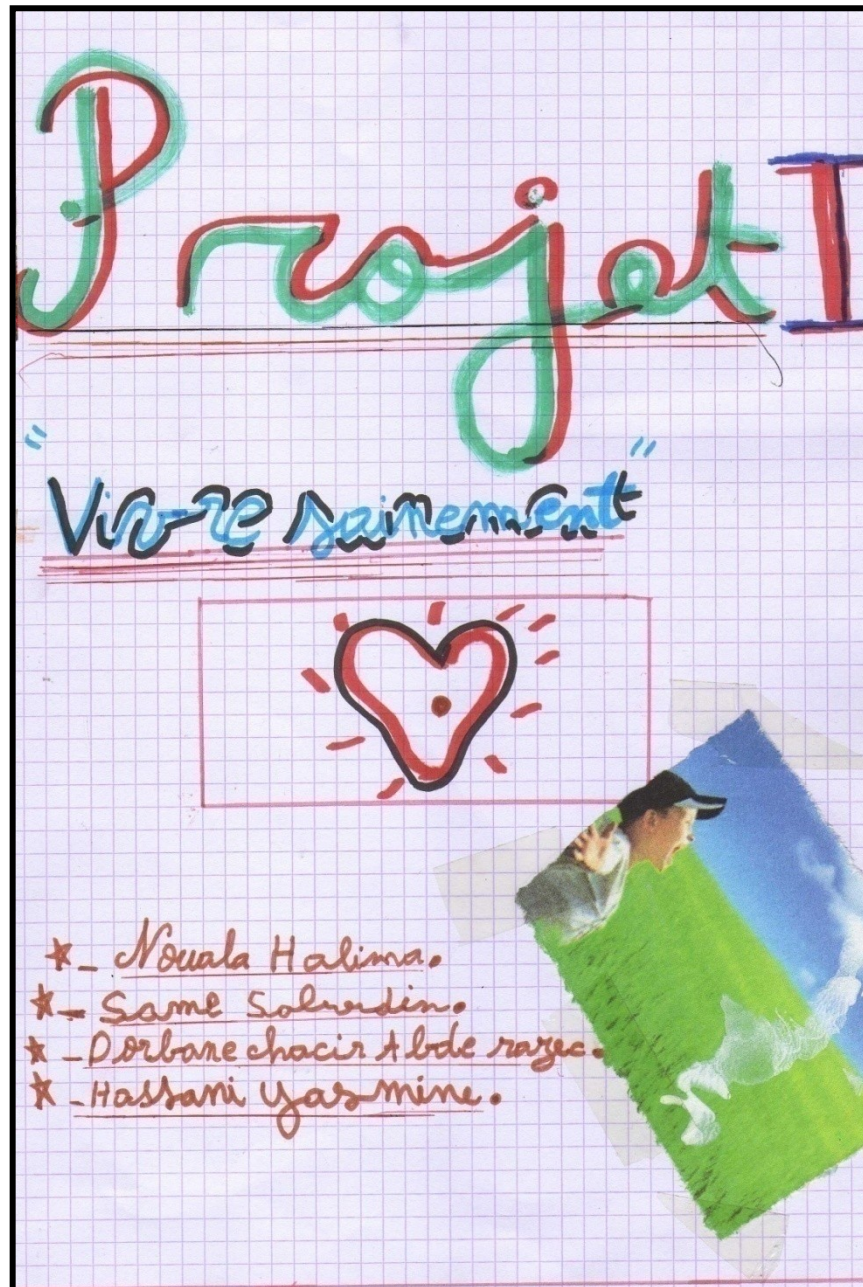 Projet I
"Vivre sainement"
*- Nouala Halima.
*- Same Salurdin.
*- Dorbane chacir Abde razec.
*- Hassani yasmine.